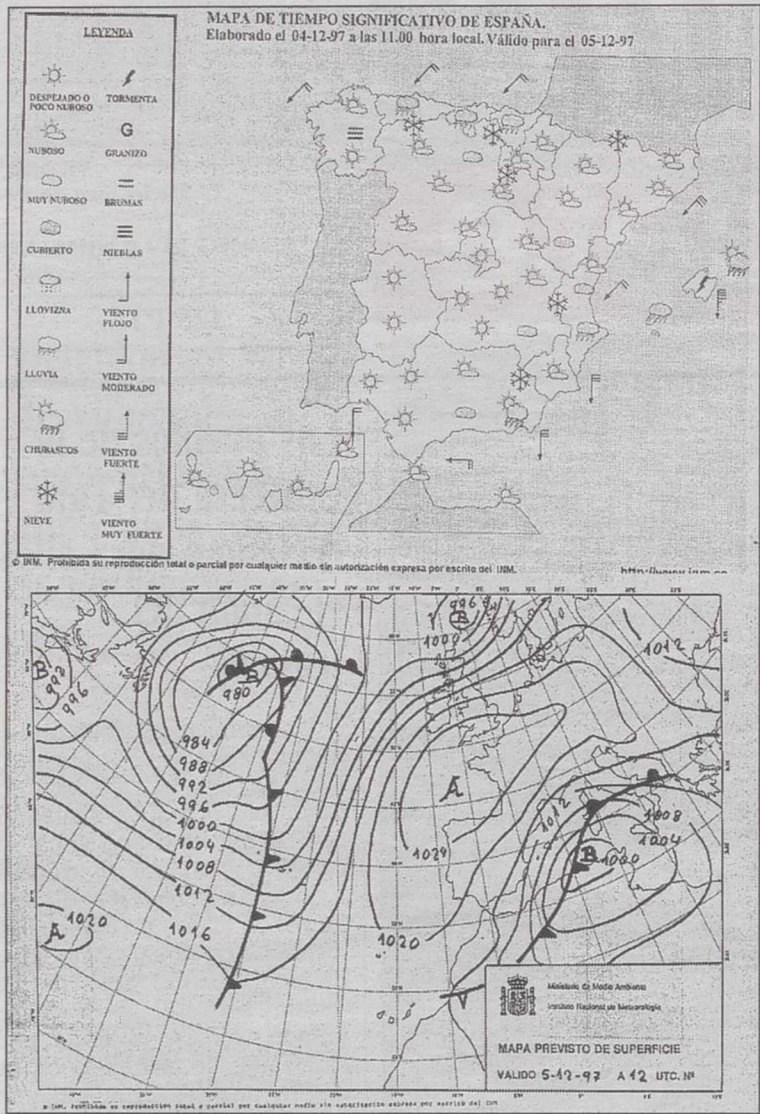 MAPA DE TIEMPO SIGNIFICATIVO DE ESPAÑA.
Elaborado el 04-12-97 a las 11.00 hora local. Válido para el 05-12-97
LEYENDA
DESPEJADO O
POCO NUBOSO
TORMENTA
NUBOSO
G
GRANIZO
MUY NUBOSO
BRUMAS
CUBIERTO
NIEBLAS
LLOVIZNA
VIENTO
FLOJO
LLUVIA
VIENTO
MODERADO
CHUBASCOS
VIENTO
FUERTE
NIEVE
VIENTO
MUY FUERTE
© INM. Prohibida su reproducción total o parcial por cualquier medio sin autorización expresa por escrito del INM.
B
992
996
B
980
984
988
992
996
1000
1004
1008
1012
1016
A
1020
996
B
1000
1012
A
1024
1020
1012
1008
1004
B
1000
Ministerio de Medio Ambiente
Instituto Nacional de Meteorología
MAPA PREVISTO DE SUPERFICIE
VALIDO 5-12-97 A 12 UTC. Nº
© INM. Prohibida su reproducción total o parcial por cualquier medio sin autorización expresa por escrito del INM